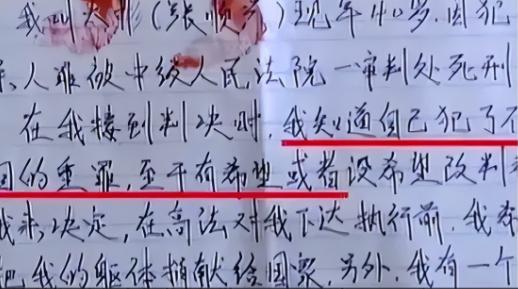 我叫大彬(张顺)现年40岁.因犯
人难被中级人民法院一审判处死刑
在我接到判决时,我知道自己犯了不
的重罪,至于有希望或者没希望改判
我来决定,在高法对我下达执行前.我
把我的躯体捐献给国家,另外.我有一个